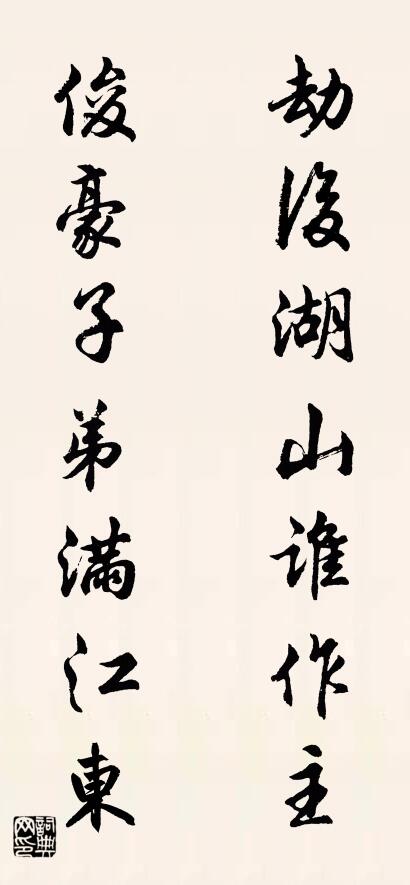 劫後湖山誰作主
俊豪子弟滿江東
詞典网印